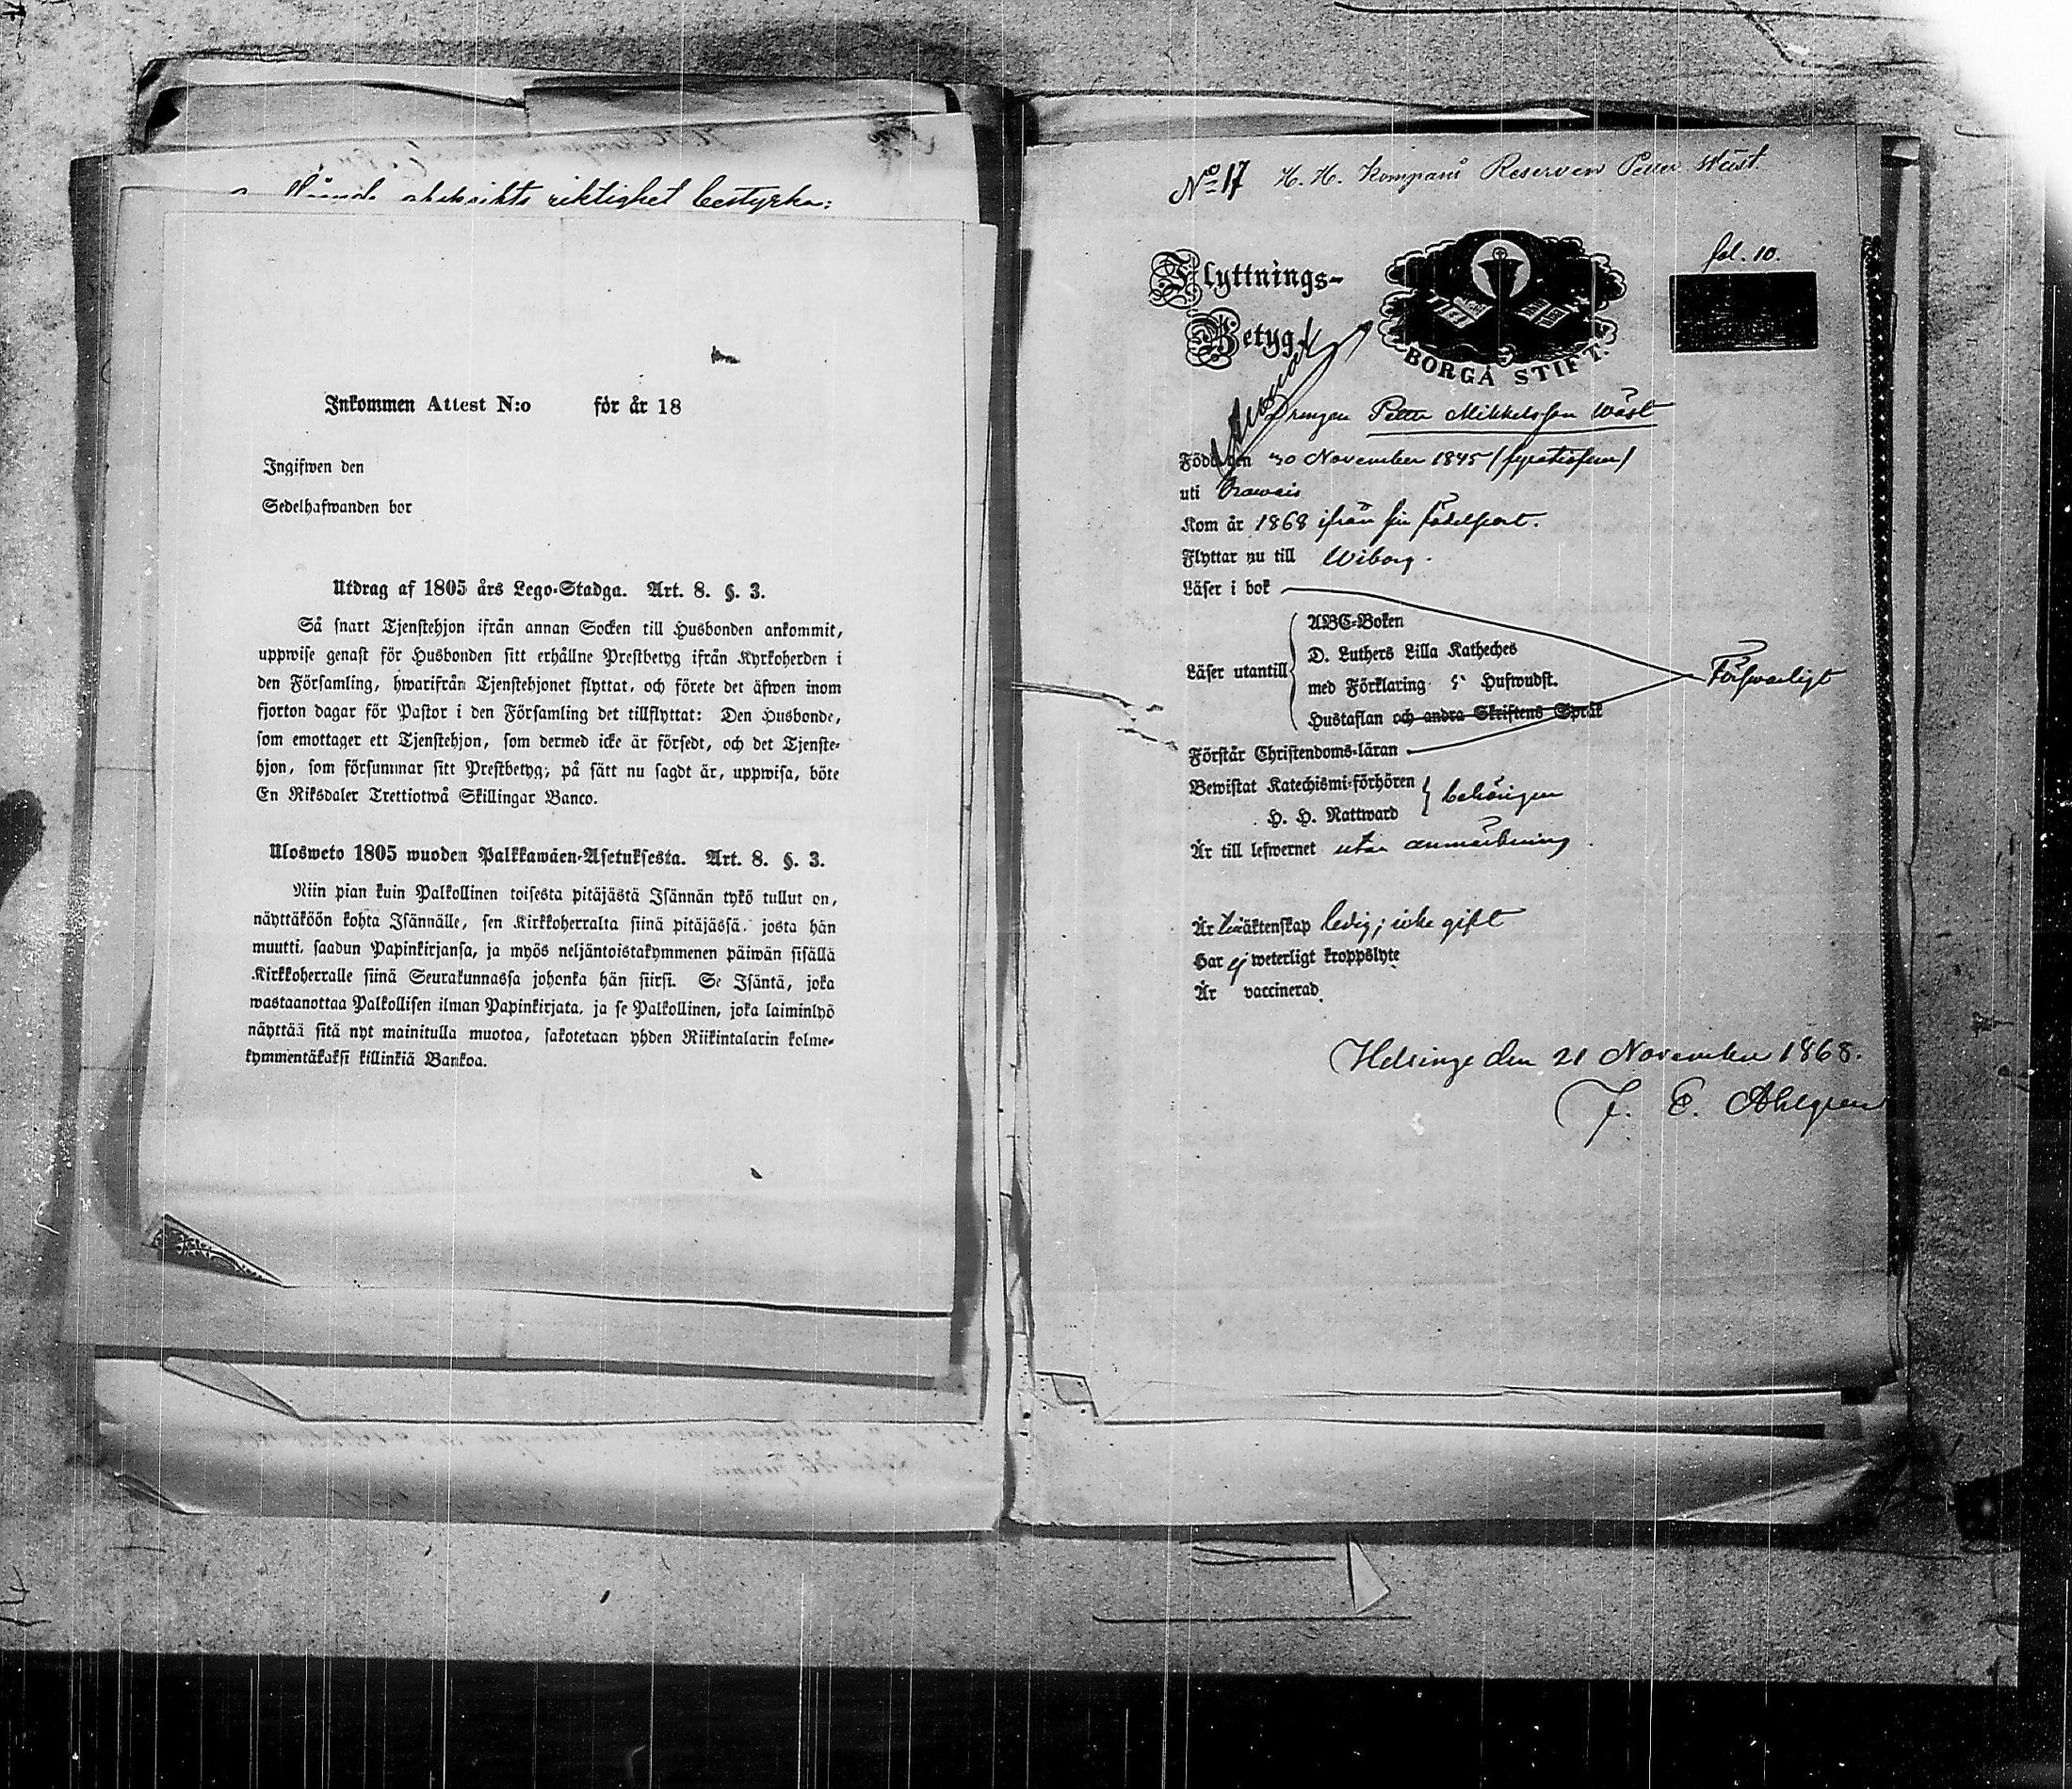 riktighet bestyrka:
Inkommen Attest N:o för år 18
Ingifwen den
Sedelhafwanden bor
Utdrag af 1805 års Lego-Stadga. Art. 8. §. 3.
Så snart Tjenstehjon ifrån annan Socken till Husbonden ankommit,
uppwise genast för Husbonden sitt erhållne Prestbetyg ifrån Kyrkoherden i
den Församling, hwarifrån Tjenstehjonet flyttat, och förete det äfwen inom
fjorton dagar för Pastor i den Församling det tillflyttat: Den Husbonde,
som emottager ett Tjenstehjon, som dermed icke är försedt, och det Tjenste-
hjon, som försummar sitt Prestbetyg, på sätt nu sagdt är, uppwisa, böte
En Riksdaler Trettiotwå Skillingar Banco.
Ulosweto 1805 wuoden Palkkawäen-Asetuksesta. Art. 8. §. 3.
Niin pian kuin Palkollinen toisesta pitäjästä Isännän tykö tullut on,
näyttäköön kohta Isännälle, sen Kirkkoherralta siinä pitäjässä, josta hän
muutti, saadun Papinkirjansa, ja myös neljäntoistakymmenen päiwän sisällä
Kirkkoherralle siinä Seurakunnassa johonka hän siirsi. Se Isäntä, joka
wastaanottaa Palkollisen ilman Papinkirjata, ja se Palkollinen, joka laiminlyö
näyttää sitä nyt mainitulla muotoa, sakotetaan yhden Riikintalarin kolme-
kymmentäkaksi killinkiä Bankoa.
No 17 H. H. Kompani Reserven Petter Wäst
fol. 10.
Flyttnings-
Betyg.
BORGÅ STIFT.
Drengen Petter Mikkelsson Wäst
Född den 30 November 1845 (fyratiofem)
uti Orawais
Kom år 1868 ifrån sin födelseort.
Flyttar nu till Wiborg.
Läser i bok
Läser utantill
ABC-Boken
D. Luthers Lilla Katheches
med Förklaring 5 Hufwudst.
Hustaflan och andra Skriftens Språk
Förswarligt
Förstår Christendoms-läran
Bewistat Katechismi-förhören
H. H. Nattward
behörigen
Är till lefwernet utan anmärkning.
Är i äktenskap ledig; icke gift
Har ej weterligt kroppslyte
Är vaccinerad.
Helsinge den 21 November 1868.
J. E. Ahlgren